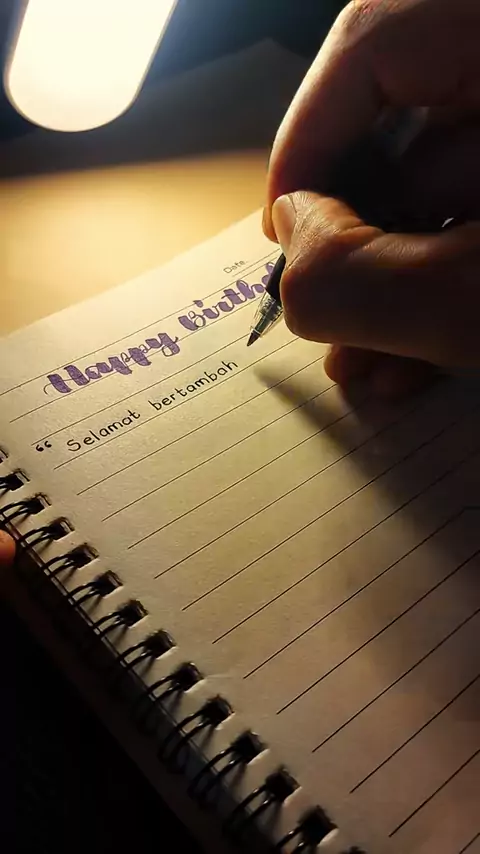 Date
Happy Birthd
“ Selamat bertambah